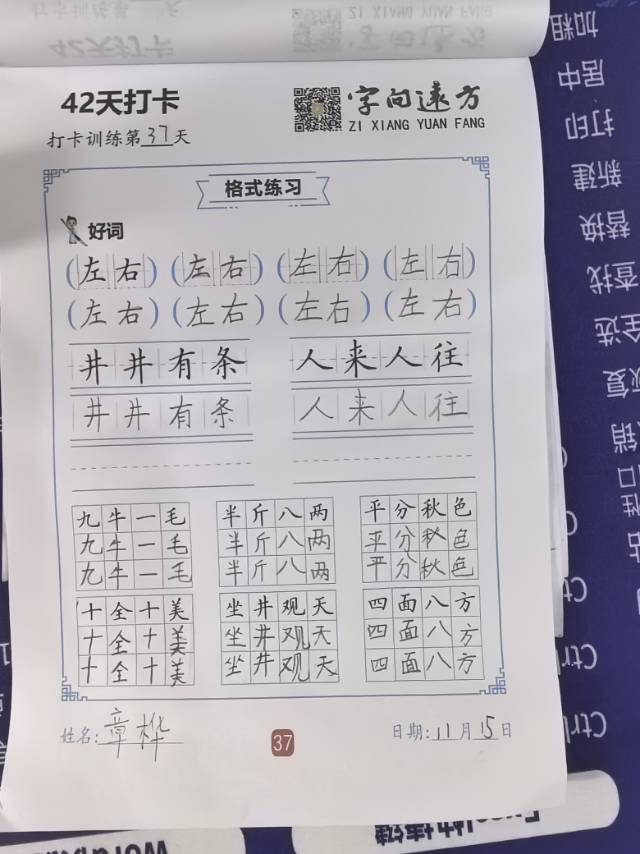 42天打卡
字向速方
ZI XIANG YUAN FANG
打卡训练第37天
格式练习
好词
(左右) (左右) (左右) (左右)
(左右) (左右) (左右) (左右)
井井有条 人来人往
井井有条 人来人往
九牛一毛 半斤八两 平分秋色
九牛一毛 半斤八两 平分秋色
九牛一毛 半斤八两 平分秋色
十全十美 坐井观天 四面八方
十全十美 坐井观天 四面八方
十全十美 坐井观天 四面八方
姓名:章桦 37 日期:11月15日
加粗
居中
打印
新建
替换
查找
全选
恢复
撤销
Ctrl
Ctrl
Ctrl